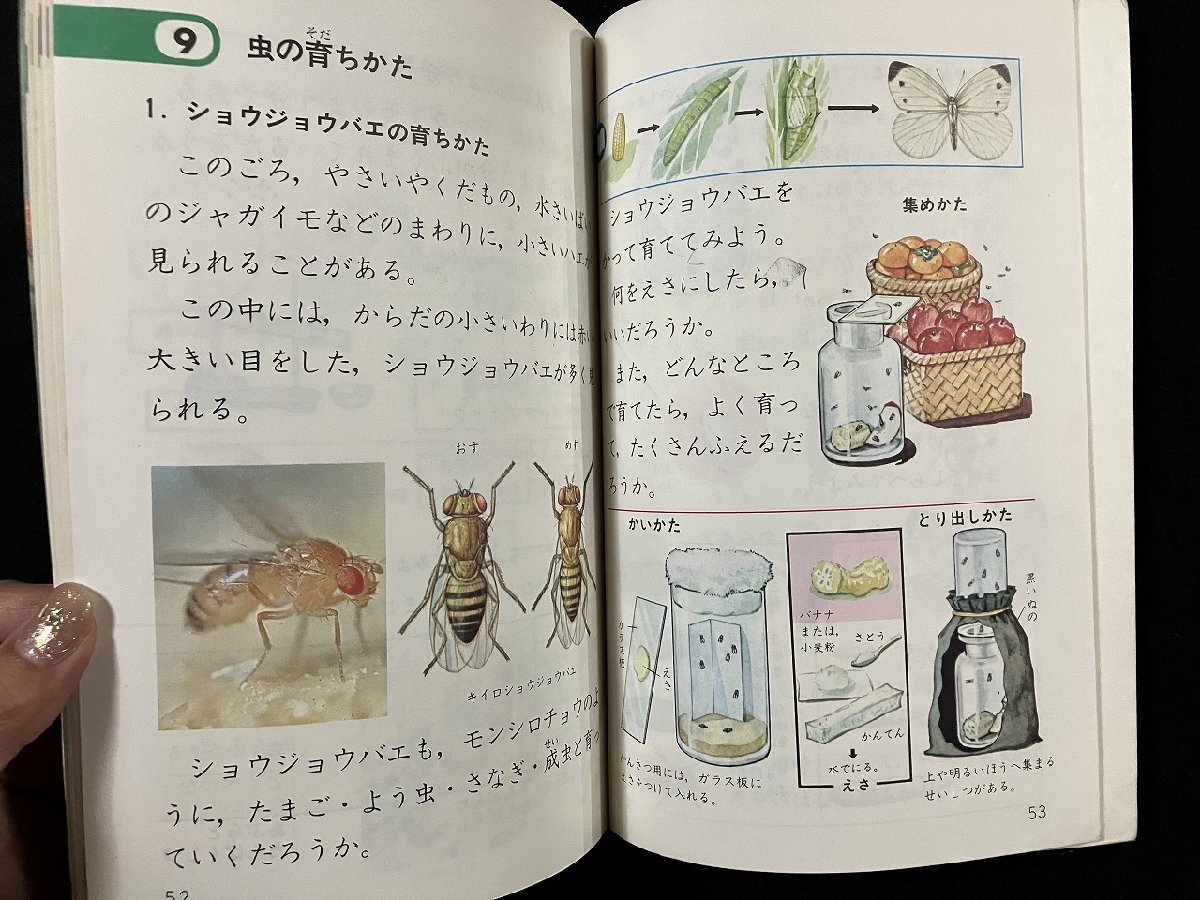 9 虫の育ちかた
そだ
1. ショウジョウバエの育ちかた
このごろ，やさいやくだもの，水さいばい
のジャガイモなどのまわりに，小さいハエが
見られることがある。
この中には，からだの小さいわりには赤い
大きい目をした，ショウジョウバエが多く見
られる。
おす
めす
キイロショウジョウバエ
ショウジョウバエも，モンシロチョウのよ
うに，たまご・よう虫・さなぎ・成虫と育っ
せい
ていくだろうか。
52
ショウジョウバエを
かって育ててみよう。
何をえさにしたら，
いいだろうか。
また，どんなところ
で育てたら，よく育っ
て，たくさんふえるだ
ろうか。
集めかた
かいかた
ガラス板
えさ
バナナ
または，
小麦粉
さとう
かんてん
水でにる。
えさ
とり出しかた
黒いぬの
かんさつ用には，ガラス板に
えさをつけて入れる。
上や明るいほうへ集まる
せいしつがある。
53